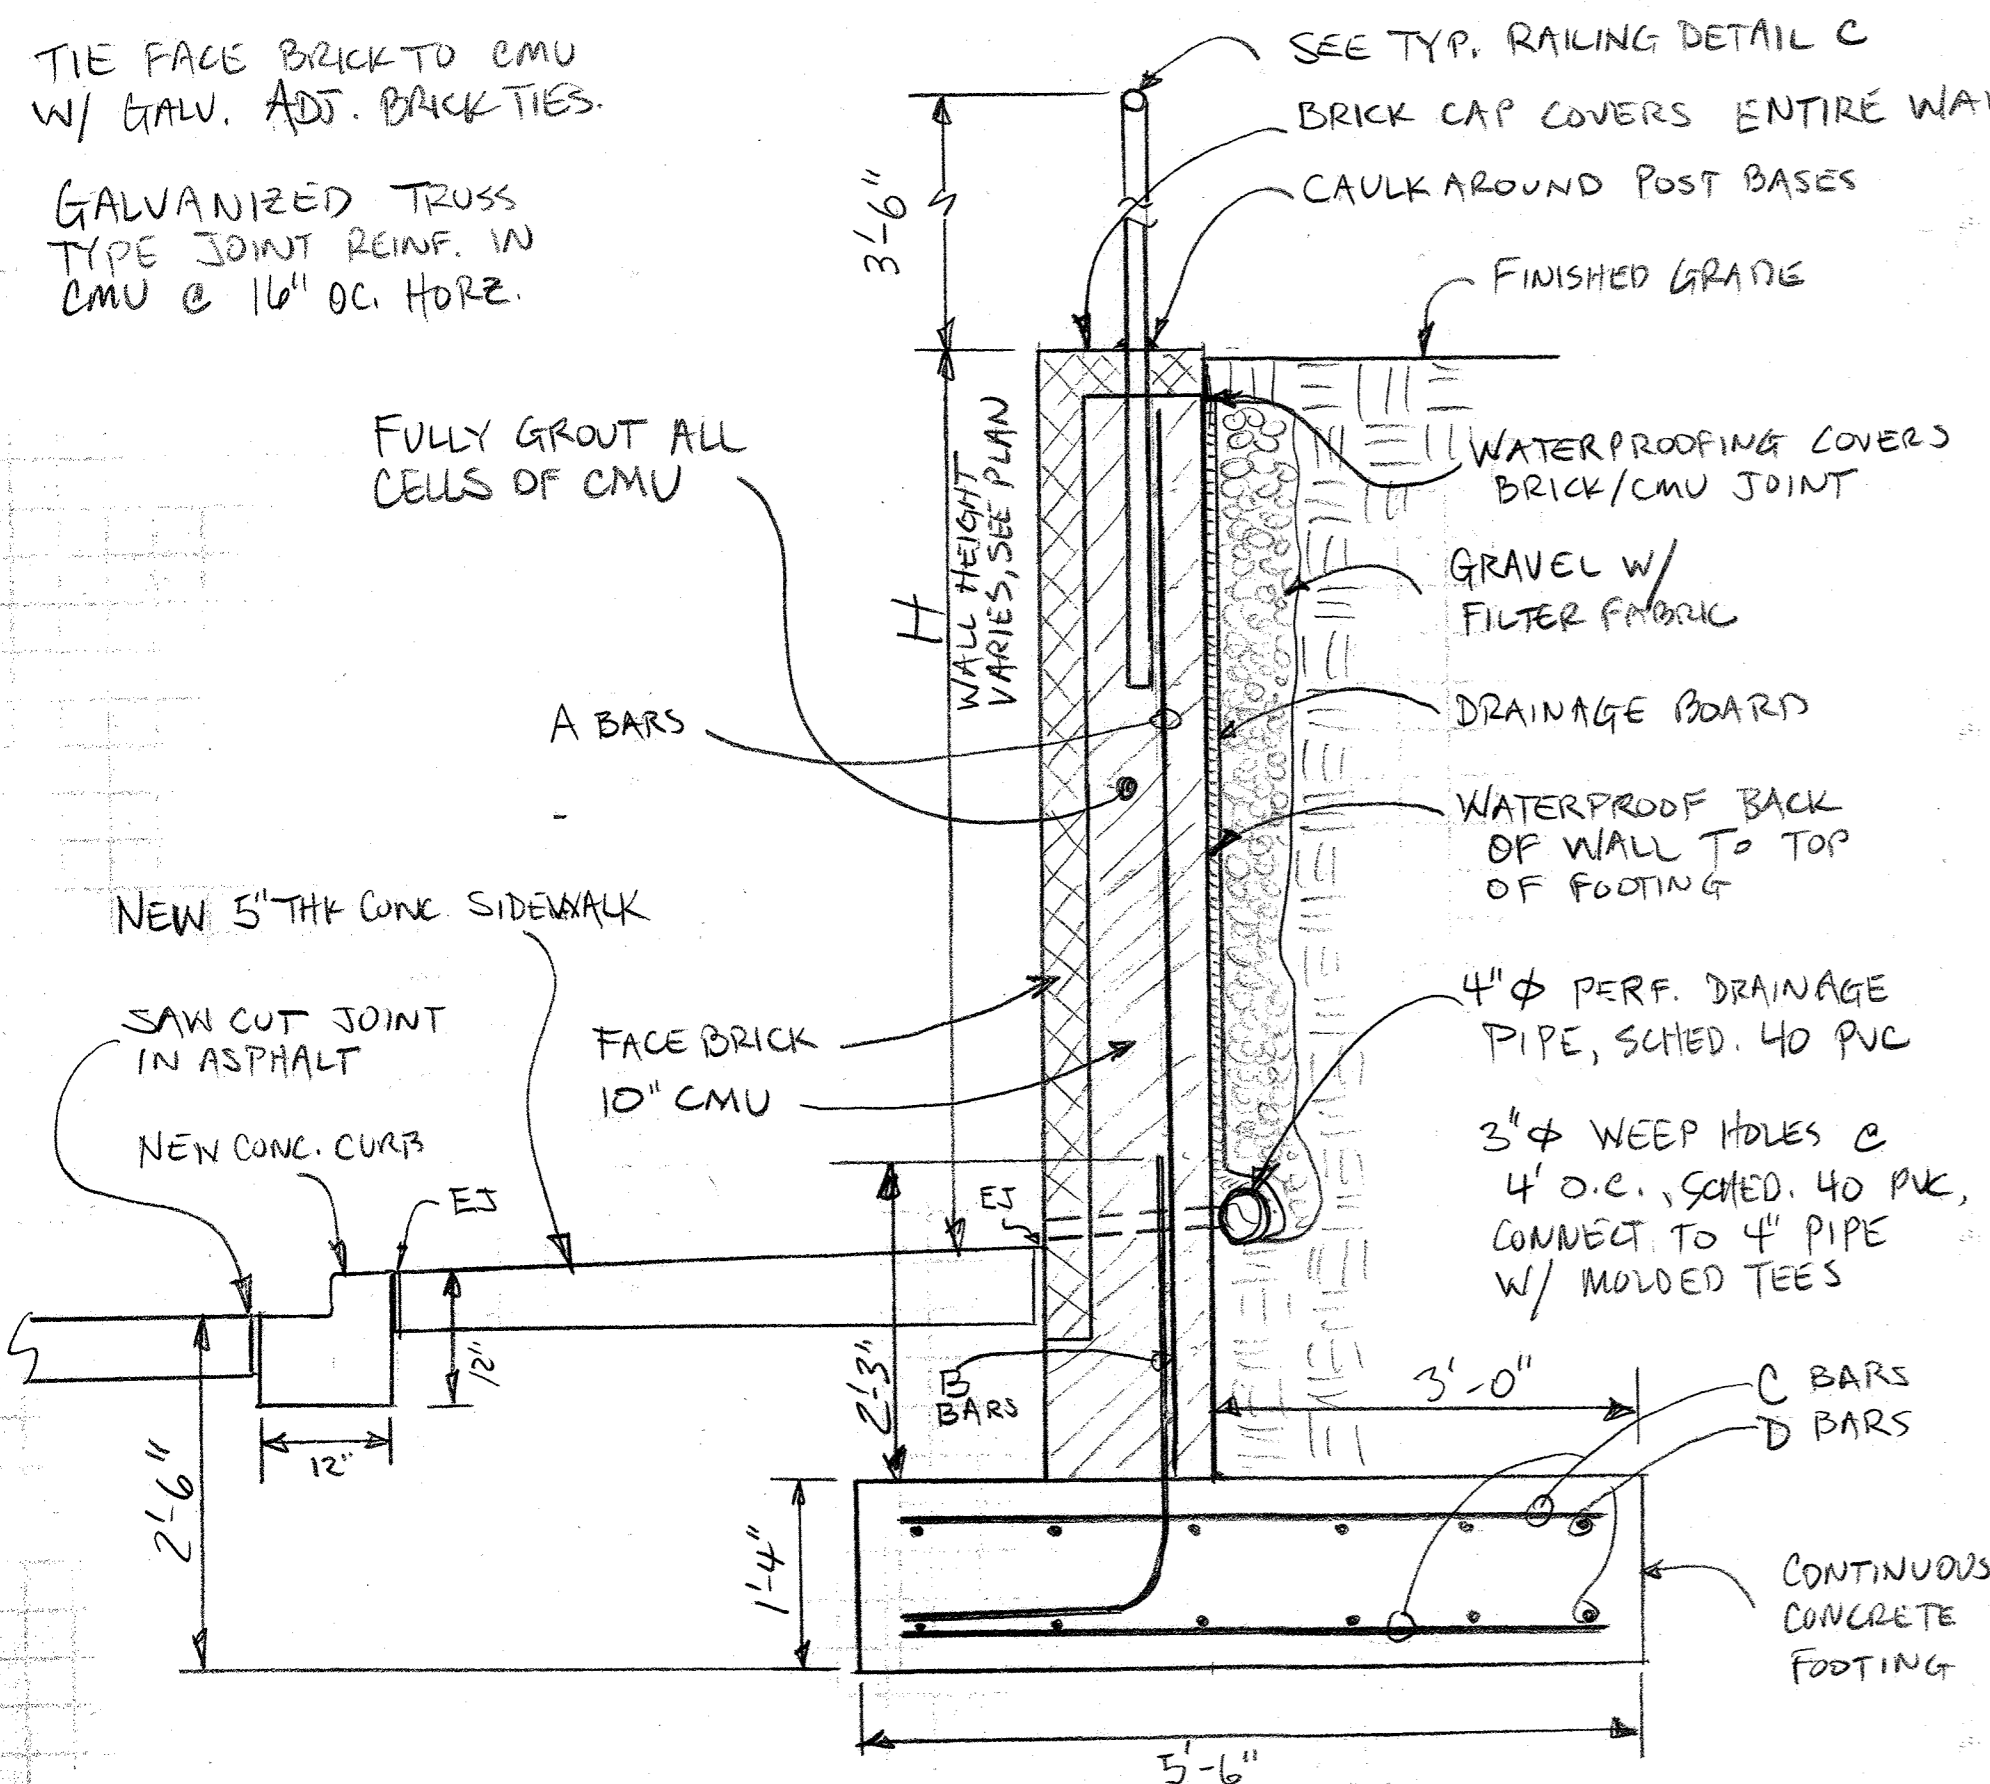 TIE FACE BRICK TO CMU
W/ GALV. ADJ. BRICK TIES.
GALVANIZED TRUSS
TYPE JOINT REINF. IN
CMU @ 16" OC. HORZ.
SEE TYP. RAILING DETAIL C
BRICK CAP COVERS ENTIRE
CAULK AROUND POST BASES
3'-6"
FINISHED GRADE
FULLY GROUT ALL
CELLS OF CMU
H
WALL HEIGHT
VARIES, SEE PLAN
WATERPROOFING COVERS
BRICK/CMU JOINT
GRAVEL W/
FILTER FABRIC
A BARS
DRAINAGE BOARD
WATERPROOF BACK
OF WALL TO TOP
OF FOOTING
NEW 5" THK CONC. SIDEWALK
SAW CUT JOINT
IN ASPHALT
FACE BRICK
10" CMU
4"Φ PERF. DRAINAGE
PIPE, SCHED. 40 PVC
NEW CONC. CURB
EJ
EJ
3"Φ WEEP HOLES @
4' O.C., SCHED. 40 PVC,
CONNECT TO 4" PIPE
W/ MOLDED TEES
12"
12"
2'-3"
B
BARS
3'-0"
C BARS
D BARS
2'-6"
1'-4"
CONTINUOUS
CONCRETE
FOOTING
5'-6"